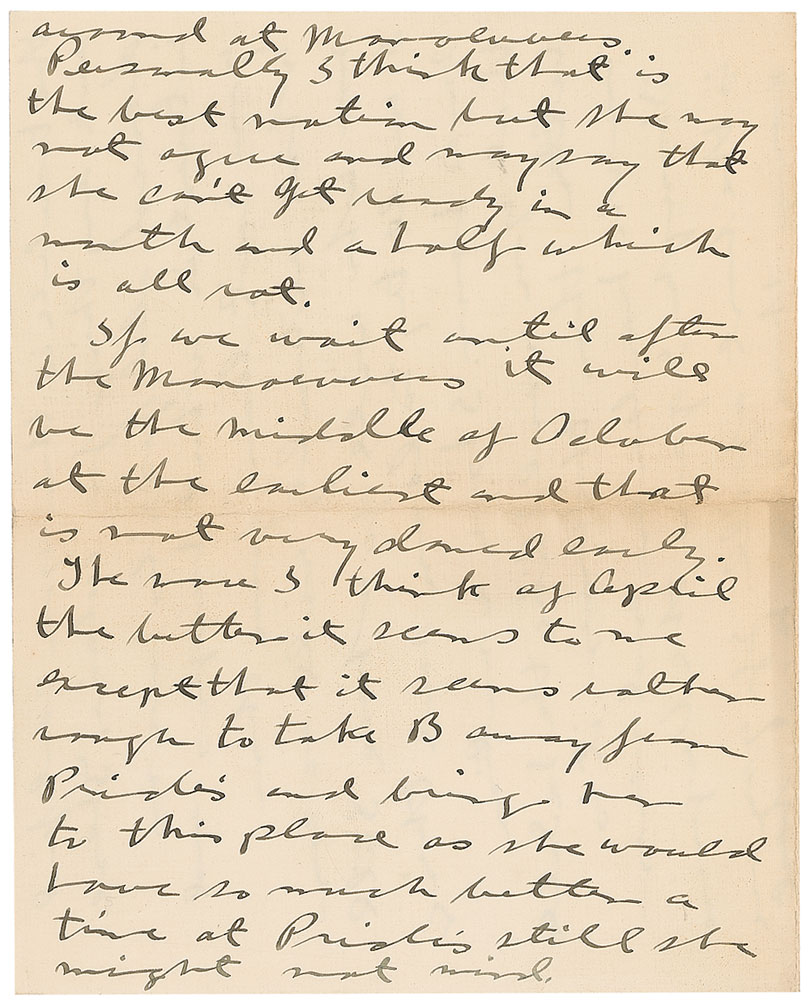 around at Manoeuvers.
Personally I think that is
the best notion but she may
not agree and may say that
she can't get ready in a
month and a half which
is all rot.
If we wait until after
the Manoeuvers it will
be the middle of October
at the earliest and that
is not very damed early.
The more I think of April
the better it seems to me
except that it seems rather
rough to take B away from
Pride's and bring her
to this place as she would
have so much better a
time at Pride's still she
might not mind.